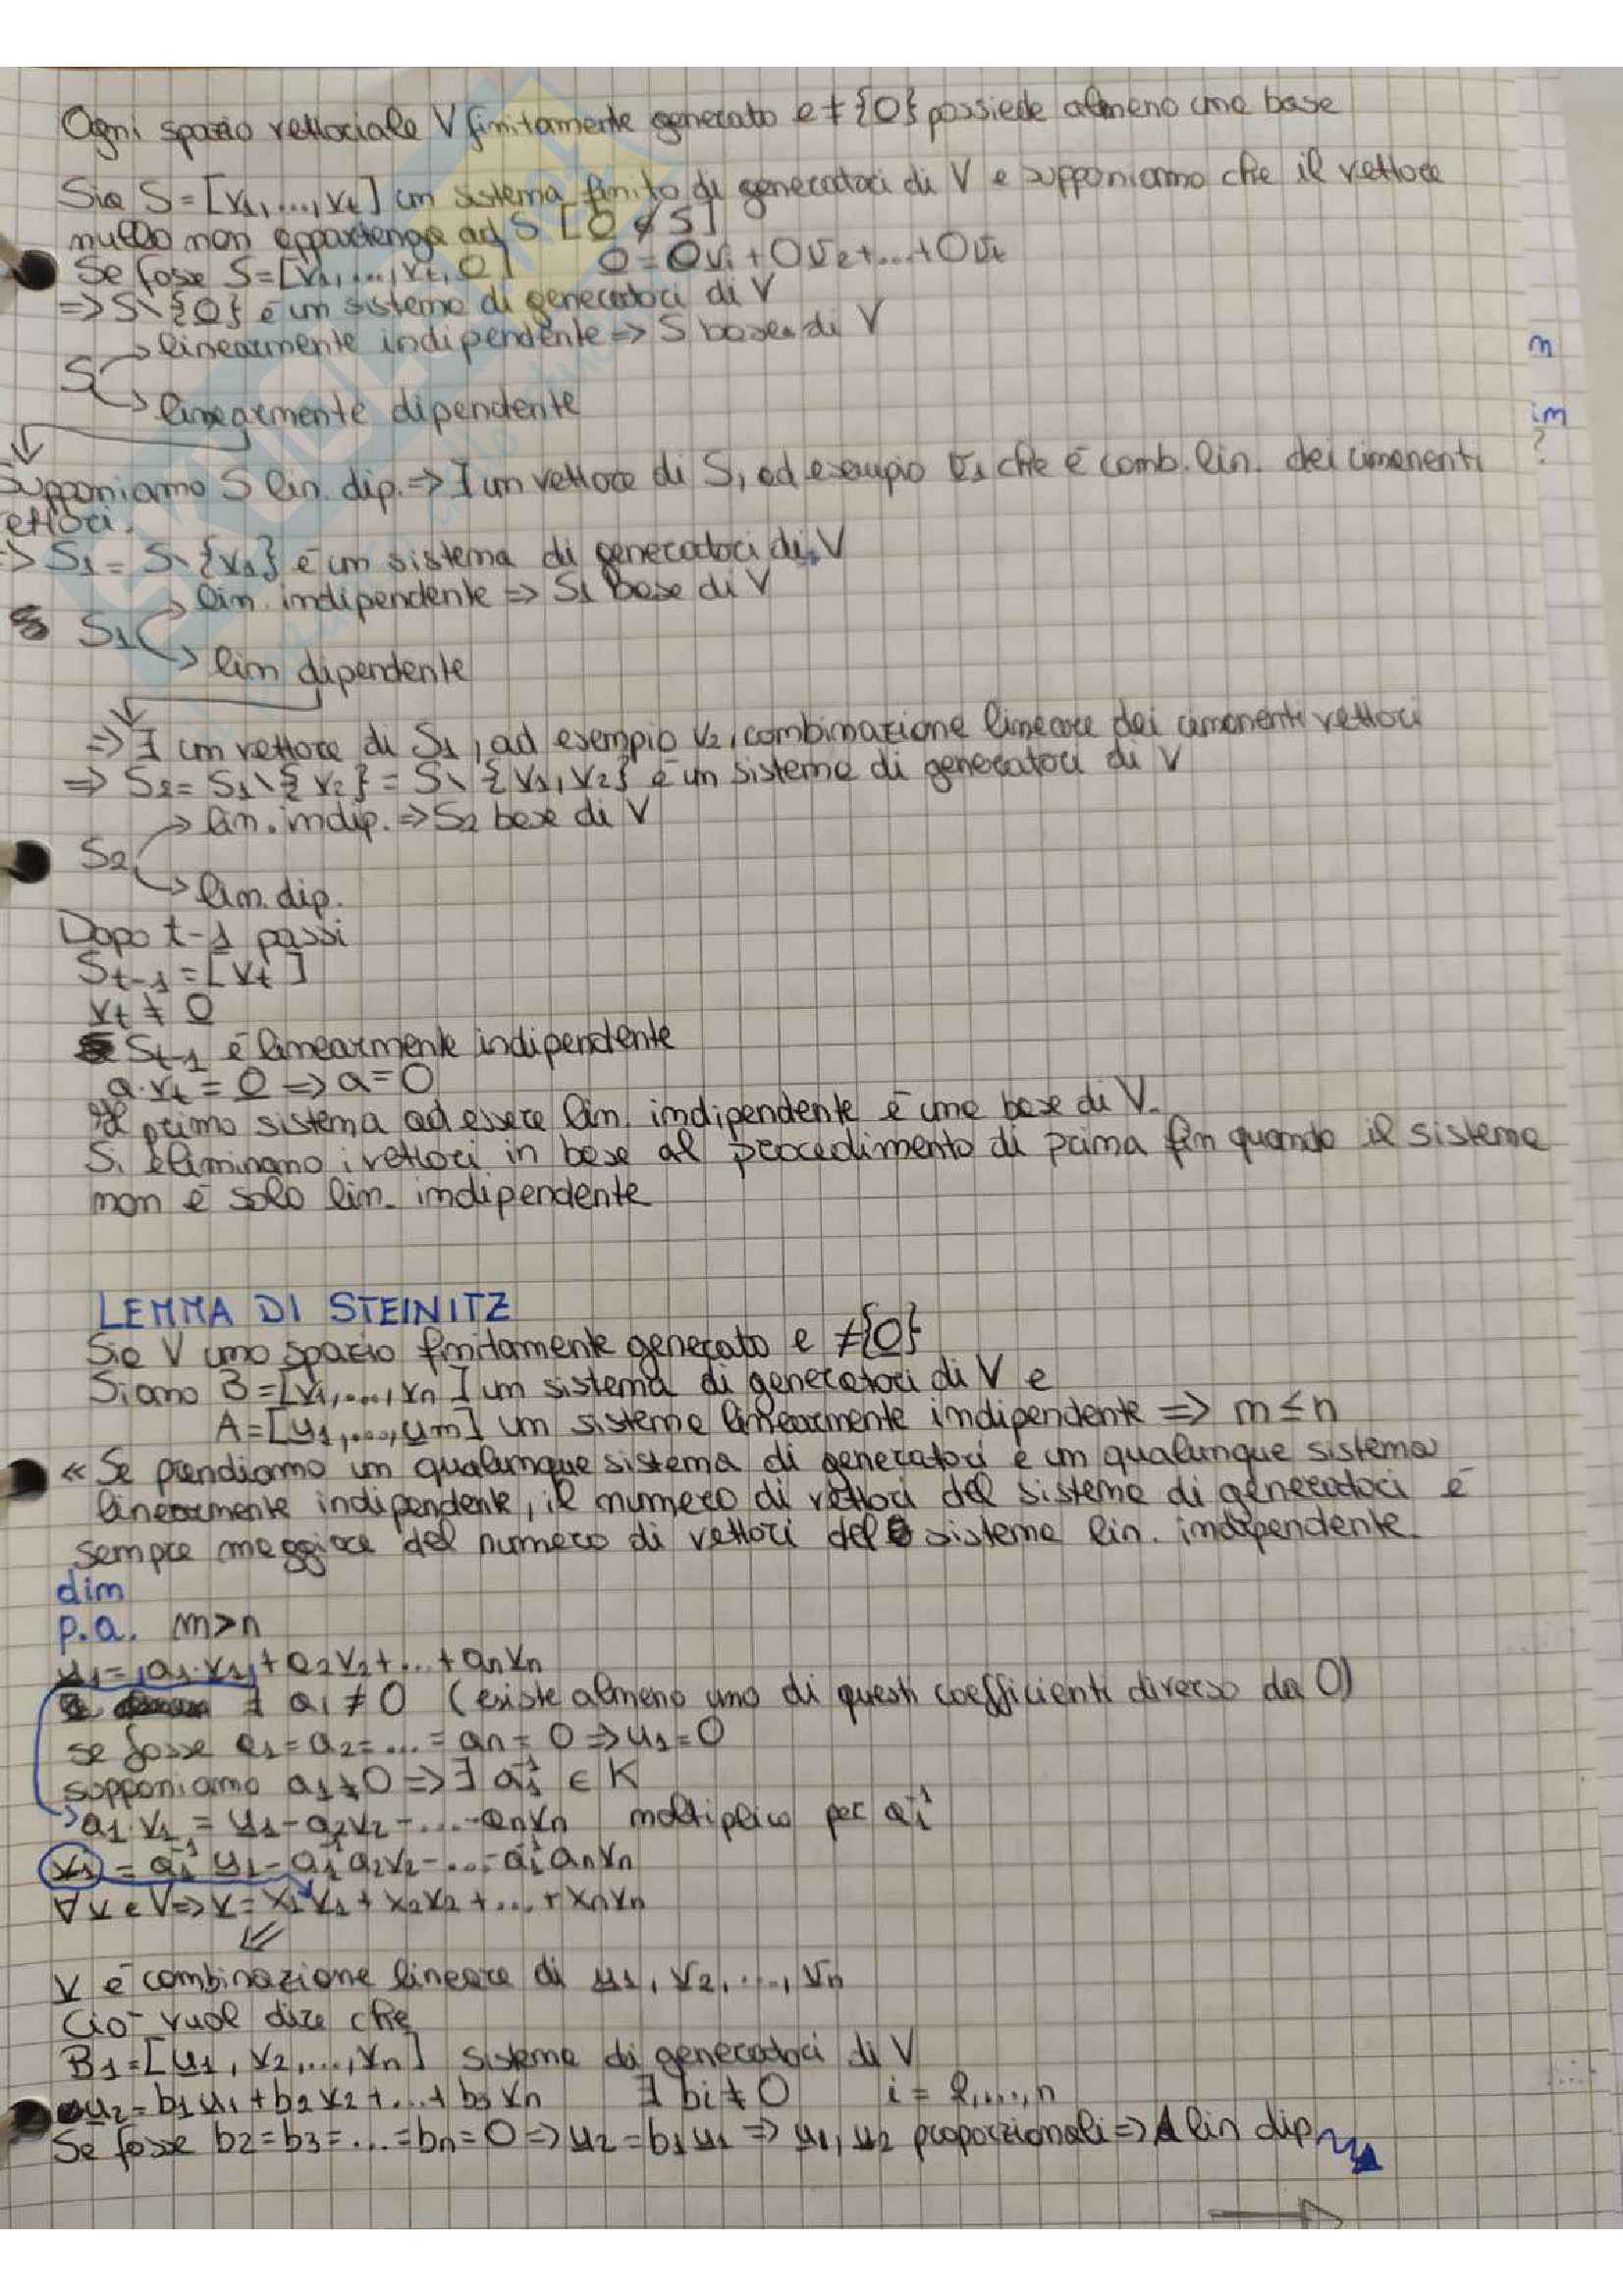 Ogni spazio vettoriale V finitamente generato e ≠ {0} possiede almeno una base
Sia S = [v1, ..., vt] un sistema finito di generatori di V e supponiamo che il vettore
nullo non appartenga ad S [0 ∉ S]
Se fosse S = [v1, ..., vt, 0] 0 = 0v1 + 0v2 + ... + 0vt
=> S \ {0} è un sistema di generatori di V
linearmente indipendente => S base di V
S
linearmente dipendente
Supponiamo S lin. dip. => ∃ un vettore di S, ad esempio v1 che è comb. lin. dei rimanenti
ettori.
=> S1 = S \ {v1} è un sistema di generatori di V
lin. indipendente => S1 Base di V
S1
lin dipendente
=> ∃ un vettore di S1, ad esempio v2, combinazione lineare dei rimanenti vettori
=> S2 = S1 \ {v2} = S \ {v1, v2} è un sistema di generatori di V
lin. indip. => S2 base di V
S2
lin. dip.
Dopo t-1 passi
St-1 = [vt]
vt ≠ 0
St-1 è linearmente indipendente
a · vt = 0 => a = 0
Il primo sistema ad essere lin. indipendente è una base di V.
Si eliminano i vettori in base al procedimento di prima fin quando il sistema
non è solo lin. indipendente
n
im
?
LEMMA DI STEINITZ
Sia V uno spazio finitamente generato e ≠ {0}
Siano B = [v1, ..., vn] un sistema di generatori di V e
A = [u1, ..., um] un sistema linearmente indipendente => m ≤ n
« Se prendiamo un qualunque sistema di generatori e un qualunque sistema
linearmente indipendente, il numero di vettori del sistema di generatori è
sempre maggiore del numero di vettori del sistema lin. indipendente.
dim
p.a. m > n
u1 = a1 · v1 + a2v2 + ... + anvn
∃ ai ≠ 0 (esiste almeno uno di questi coefficienti diverso da 0)
se fosse a1 = a2 = ... = an = 0 => u1 = 0
supponiamo a1 ≠ 0 => ∃ a1⁻¹ ∈ K
a1 · v1 = u1 - a2v2 - ... - anvn moltiplico per a1⁻¹
v1 = a1⁻¹ u1 - a1⁻¹ a2v2 - ... - a1⁻¹ anvn
∀ v ∈ V => v = x1v1 + x2v2 + ... + xnvn
v è combinazione lineare di u1, v2, ..., vn
Ciò vuol dire che
B1 = [u1, v2, ..., vn] sistema di generatori di V
u2 = b1u1 + b2v2 + ... + bnvn ∃ bi ≠ 0 i = 2, ..., n
Se fosse b2 = b3 = ... = bn = 0 => u2 = b1u1 => u1, u2 proporzionali => A lin dip